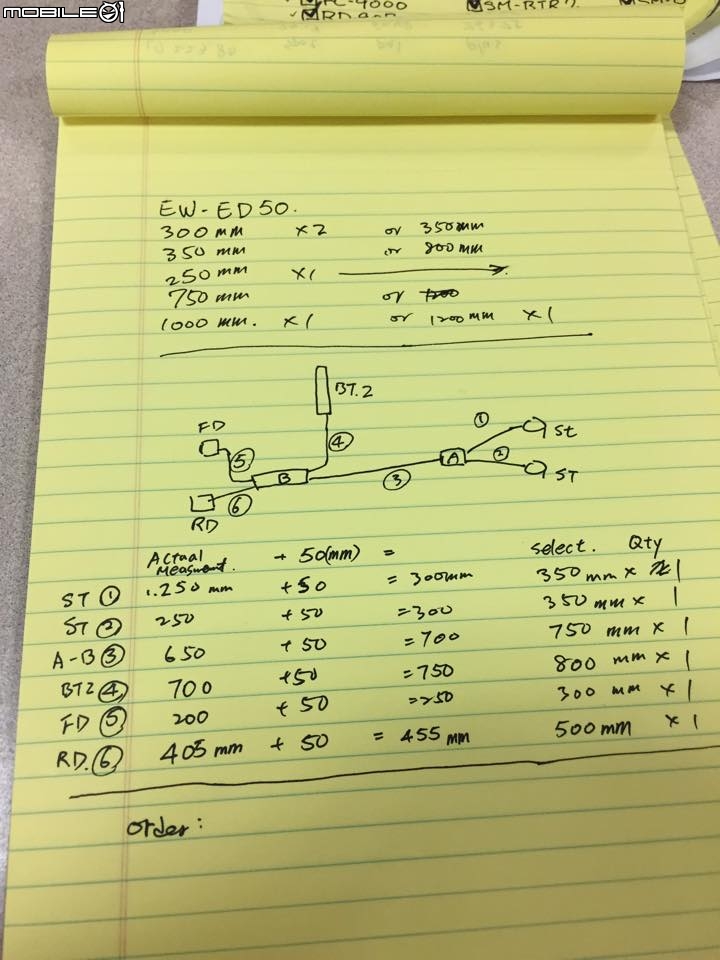 MOBILE01
RD-
SM-BTR
EW-ED50.
300mm x2 or 350mm
350mm or 800mm
250mm x1
750mm or 1200
1000mm. x1 or 1200mm x1
BT.2
FD
① St
④
⑤
② ST
B
A
③
⑥
RD
Actaal + 50(mm) = select. Qty
Measment.
ST ① 250mm +50 =300mm 350mm x 1
ST ② 250 +50 =300 350mm x 1
A-B ③ 650 +50 =700 750mm x 1
BT2 ④ 700 +50 =750 800mm x 1
FD ⑤ 200 +50 =250 300mm x 1
RD.⑥ 405mm + 50 = 455mm 500mm x 1
order: